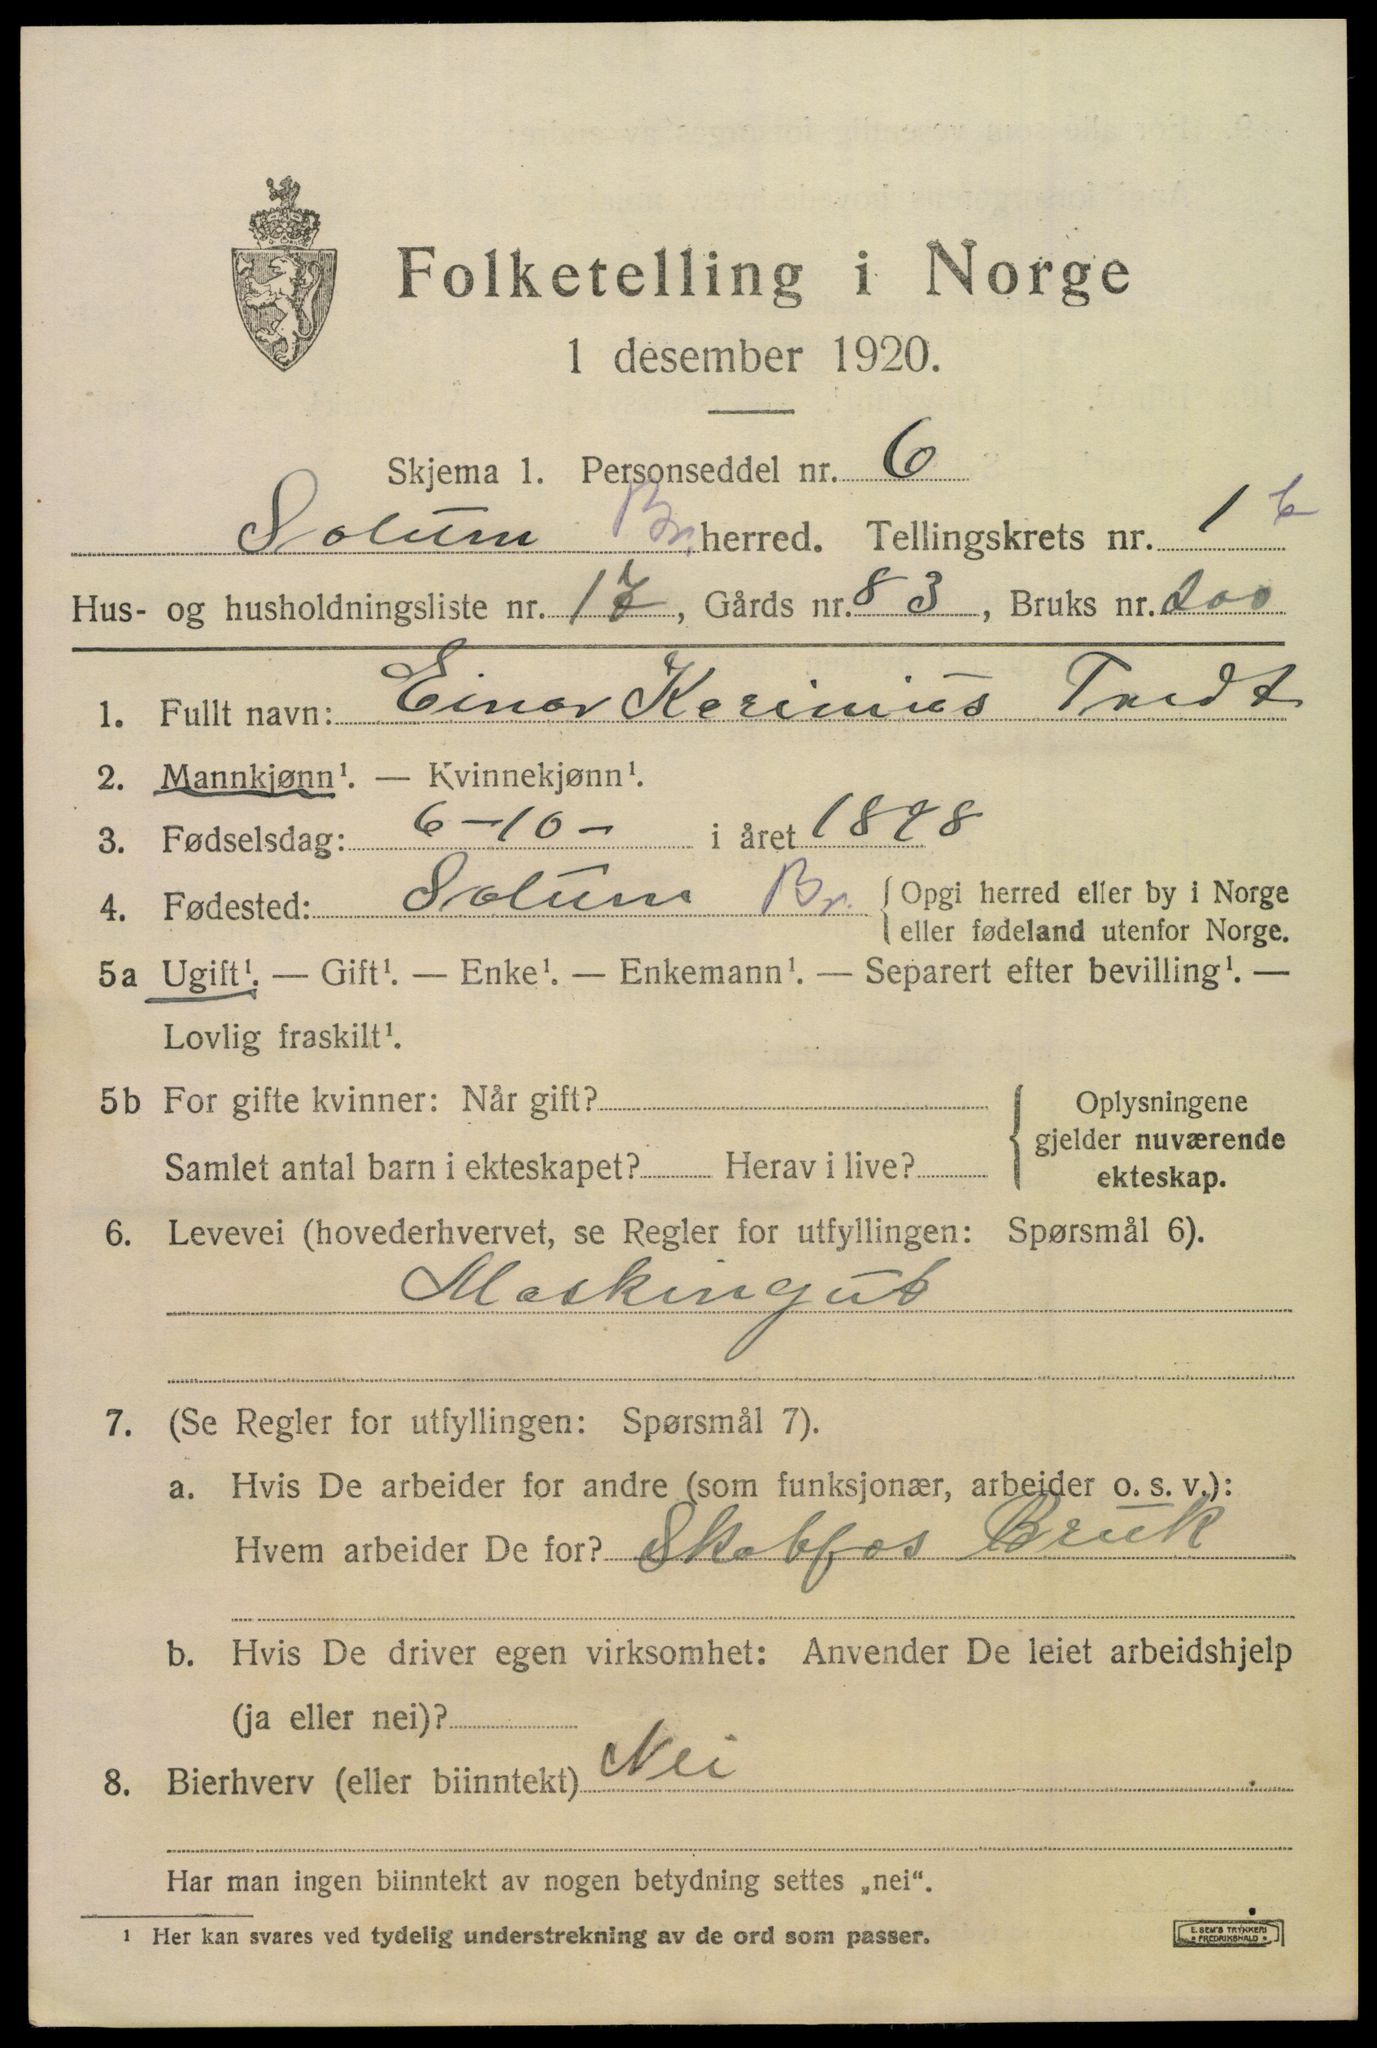 Folketelling i Norge
1 desember 1920.
Skjema 1. Personseddel nr. 6
Solum Br. herred. Tellingskrets nr. 1 b
Hus- og husholdningsliste nr. 17, Gårds nr. 83, Bruks nr. 200
1. Fullt navn: Einar Kerinius
2. Mannkjønn¹. — Kvinnekjønn¹.
3. Fødselsdag: 6-10- i året 1898
4. Fødested: Solum Br. { Opgi herred eller by i Norge
eller fødeland utenfor Norge.
5a Ugift¹. — Gift¹. — Enke¹. — Enkemann¹. — Separert efter bevilling¹. —
Lovlig fraskilt¹.
5b For gifte kvinner: Når gift?
Samlet antal barn i ekteskapet? Herav i live?
{ Oplysningene
gjelder nuværende
ekteskap.
6. Levevei (hovederhvervet, se Regler for utfyllingen: Spørsmål 6).
Maskingut
7. (Se Regler for utfyllingen: Spørsmål 7).
a. Hvis De arbeider for andre (som funksjonær, arbeider o. s. v.):
Hvem arbeider De for? Skotfos Bruk
b. Hvis De driver egen virksomhet: Anvender De leiet arbeidshjelp
(ja eller nei)?
8. Bierhverv (eller biinntekt) Nei
Har man ingen biinntekt av nogen betydning settes „nei“.
¹ Her kan svares ved tydelig understrekning av de ord som passer.
E. SEM'S TRYKKERI
• FREDRIKSHALD •